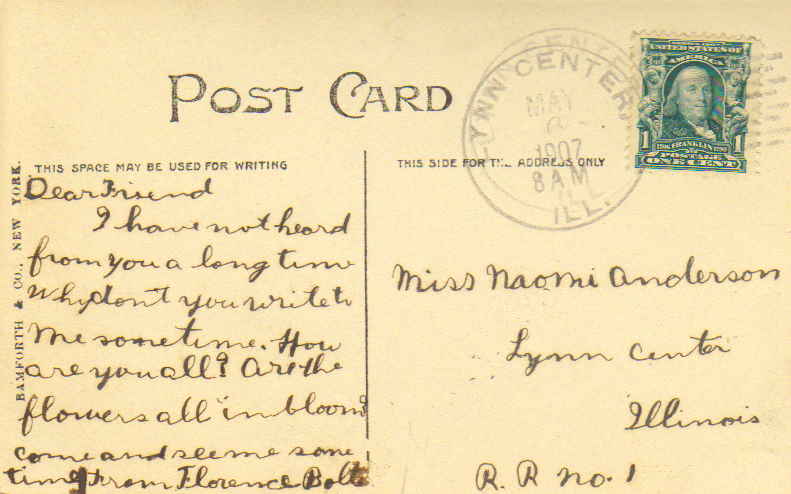 POST CARD
THIS SPACE MAY BE USED FOR WRITING
THIS SIDE FOR THE ADDRESS ONLY
BAMFORTH & CO., NEW YORK.
LYNN CENTER,
MAY
1907
8 AM
ILL.
UNITED STATES OF
AMERICA
1 FRANKLIN 1
POSTAGE
ONE CENT
Dear Friend
I have not heard
from you a long time
Why don't you write to
me sometime. How
are you all? Are the
flowers all in bloom?
come and see me some
time From Florence Bolt
Miss Naomi Anderson
Lynn Center
Illinois
R. R no. 1